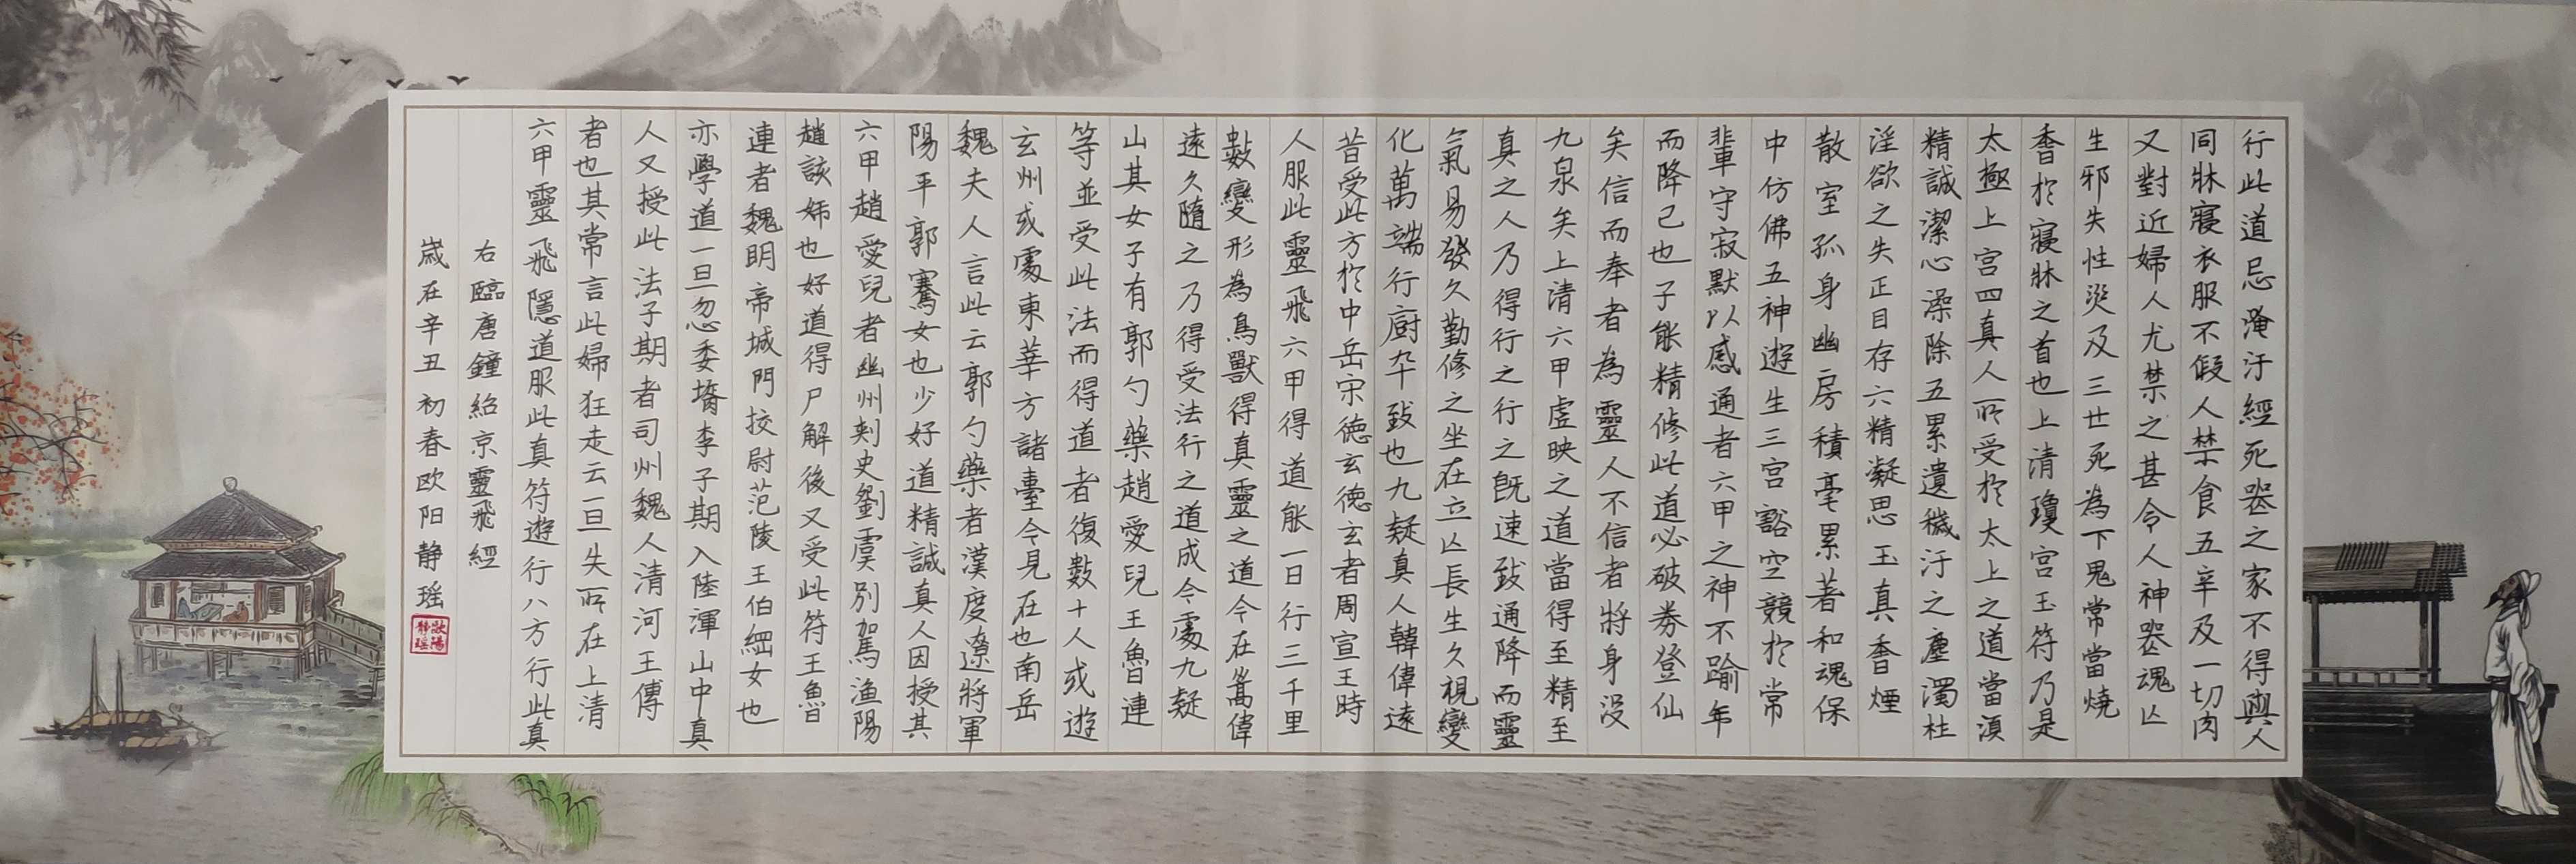 行此道忌淹汙經死喪之家不得與人
同牀寢衣服不假人禁食五辛及一切肉
又對近婦人尤禁之甚令人神喪魂亡
生邪失性災及三世死為下鬼常當燒
香於寢牀之首也上清瓊宮玉符乃是
太極上宮四真人所受於太上之道當須
精誠潔心澡除五累遺穢汙之塵濁杜
淫欲之失正目存六精凝思玉真香煙
散室孤身幽房積毫累著和魂保
中仿佛五神遊生三宮豁空競於常
輩守寂默以感通者六甲之神不踰年
而降己也子能精修此道必破券登仙
矣信而奉者為靈人不信者將身沒
九泉矣上清六甲虛映之道當得至精至
真之人乃得行之行之既速致通降而靈
氣易發久勤修之坐在立亡長生久視變
化萬端行廚卒致也九疑真人韓偉遠
昔受此方於中岳宋德玄德玄者周宣王時
人服此靈飛六甲得道能一日行三千里
數變形為鳥獸得真靈之道今在嵩偉
遠久隨之乃得受法行之道成今處九疑
山其女子有郭勺藥趙愛兒王魯連
等並受此法而得道者復數十人或遊
玄州或處東華方諸臺今見在也南岳
魏夫人言此云郭勺藥者漢度遼將軍
陽平郭騫女也少好道精誠真人因授其
六甲趙愛兒者幽州刺史劉虞別駕漁陽
趙該姊也好道得尸解後又受此符王魯
連者魏明帝城門校尉范陵王伯綱女也
亦學道一旦忽委壻李子期入陸渾山中真
人又授此法子期者司州魏人清河王傅
者也其常言此婦狂走云一旦失所在上清
六甲靈飛隱道服此真符遊行八方行此真
右臨唐鐘紹京靈飛經
歲在辛丑初春欧阳静瑶
欧陽静瑶